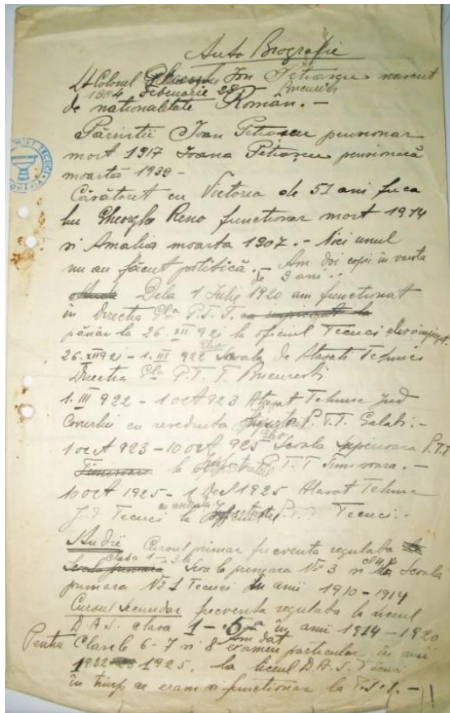 Auto Biografie
Lt Colonel Ion Petrascu nascut
1904 Februarie 28 Bucuresti
de nationalitate Român. —
Părintii Ioan Petrascu pensionar
mort 1917 Ioana Petrascu pensionară
moartă 1938 —
Căsătorit cu Victoria de 51 ani fiica
lui Gheorghe Reno functionar mort 1914
si Amalia moarta 1907. — Nici unul
nu au făcut politică. — Am doi copii în vârsta
9 ani
Dela 1 Iulie 1920 am functionat
în Directia Gla P.T.T. ca
până la 26. XII 921 la oficiul Tecuci
26. XII 921 - 1. III 922 Scoala de Atasati Tehnici
Directia Gla P.T.T. Bucuresti
1. III 922 - 1 oct 923 Atasat Tehnic Jud
Covurlui cu resedinta P.T.T. Galati. —
1 oct 923 - 10 oct 925 Scoala superioara P.T.T.
Timisoara la P.T.T Timisoara. —
10 oct 1925 - 1 1925 Atasat Tehnic
Jd Tecuci cu P.T.T Tecuci. —
Studii Cursul primar frecventa regulata
clasa 1-3
Scoala primara No 3 si Scoala
primara No 1 Tecuci în anii 1910-1914
Cursul secundar frecventa regulata la liceul
D.A.S. clasa 1-5 în anii 1914-1920
Pentru Clasele 6-7 si 8 am dat examen particular în anii
1922 1925. la liceul D.A.S.
în timp ce eram si functionar la —